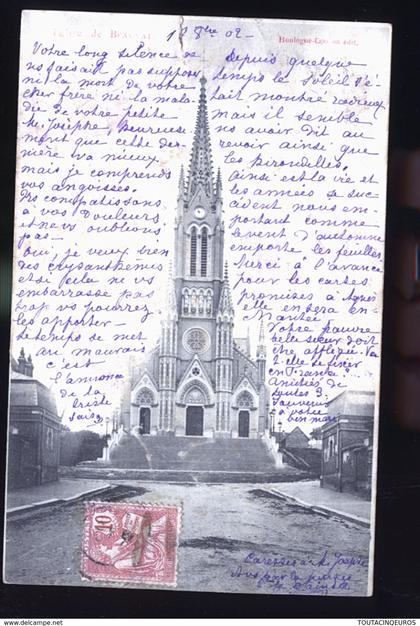 Église de BEAUVAL
18bre 02
Boulogne-Capon édit.
Votre long silence ne
ns faisait pas supposer
ni la mort de votre
cher frère ni la mala
die de votre petite
M. Josèphe, heureuse
ment que cette der-
nière va mieux
mais je comprends
vos angoisses.
Ns compatissons
à vos douleurs
et nous oublions
pas -
Oui, je veux bien
des crysanthèmes
et si cela ne vs
embarrasse pas
trop vs pourrez
les apporter -
Le temps se met
au mauvais
c'est
l'annonce
de la
triste
saison
depuis quelque
temps le soleil s'é-
tait montré
mais il semble
ns avoir dit au
revoir ainsi que
les hirondelles.
Ainsi est la vie et
les années se suc
cèdent nous em-
portant comme
le vent d'automne
emporte les feuilles
Merci à l'avance
pour les cartes
promises à Agnès
elle en sera en-
chantée
Votre pauvre
belle sœur doit
être affligée. Va
t-elle se fixer
en France?
Amitiés de
toutes 3.
Souvenir
à votre
bon mari
10
Caresses à M. Josèphe
TOUTACINQEUROS